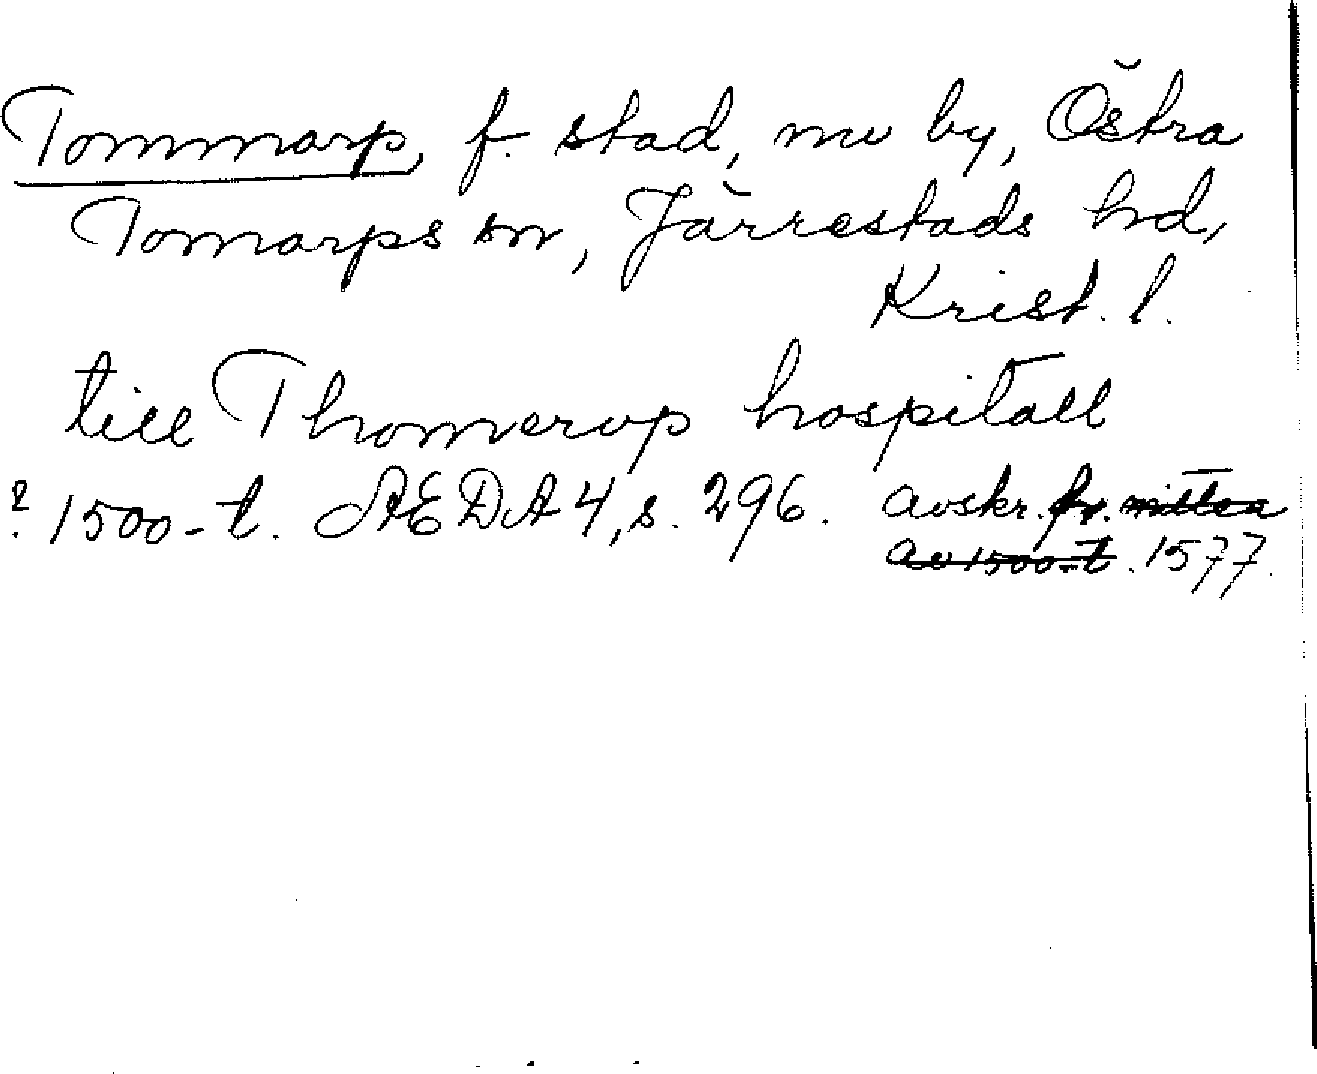 Tommarp, f. stad, nu by, Östra
Tomarps sn, Järrestads hd,
Krist. l.
till Thomerup hospitall
? 1500-t. AEDA 4, s. 296. avskr. fr. mitten
av 1500-t. 1577.